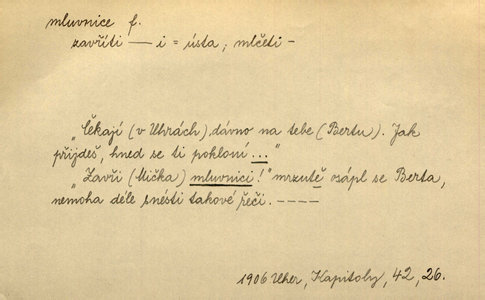 mluvnice f.
zavříti — i = ústa, mlčeti –
„Čekají (v Uhrách) dávno na tebe (Bertu). Jak
přijdeš, hned se ti pokloní ...“
„Zavři (Mička) mluvnici!“ mrzutě osápl se Berta,
nemoha déle snésti takové řeči. – – – –
1906 Uher, Kapitoly, 42, 26.